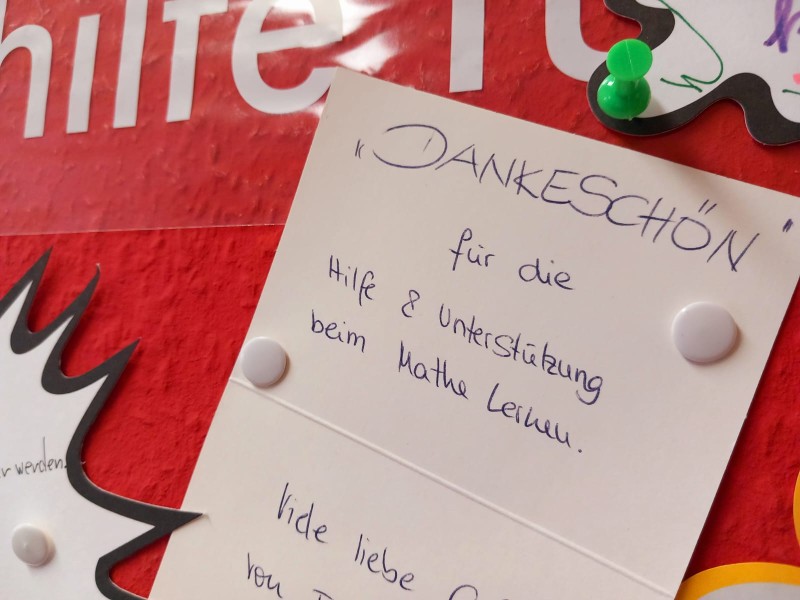 hilfe
"DANKESCHÖN"
für die
Hilfe & Unterstützung
beim Mathe Lernen.
Viele liebe
von
r werden.